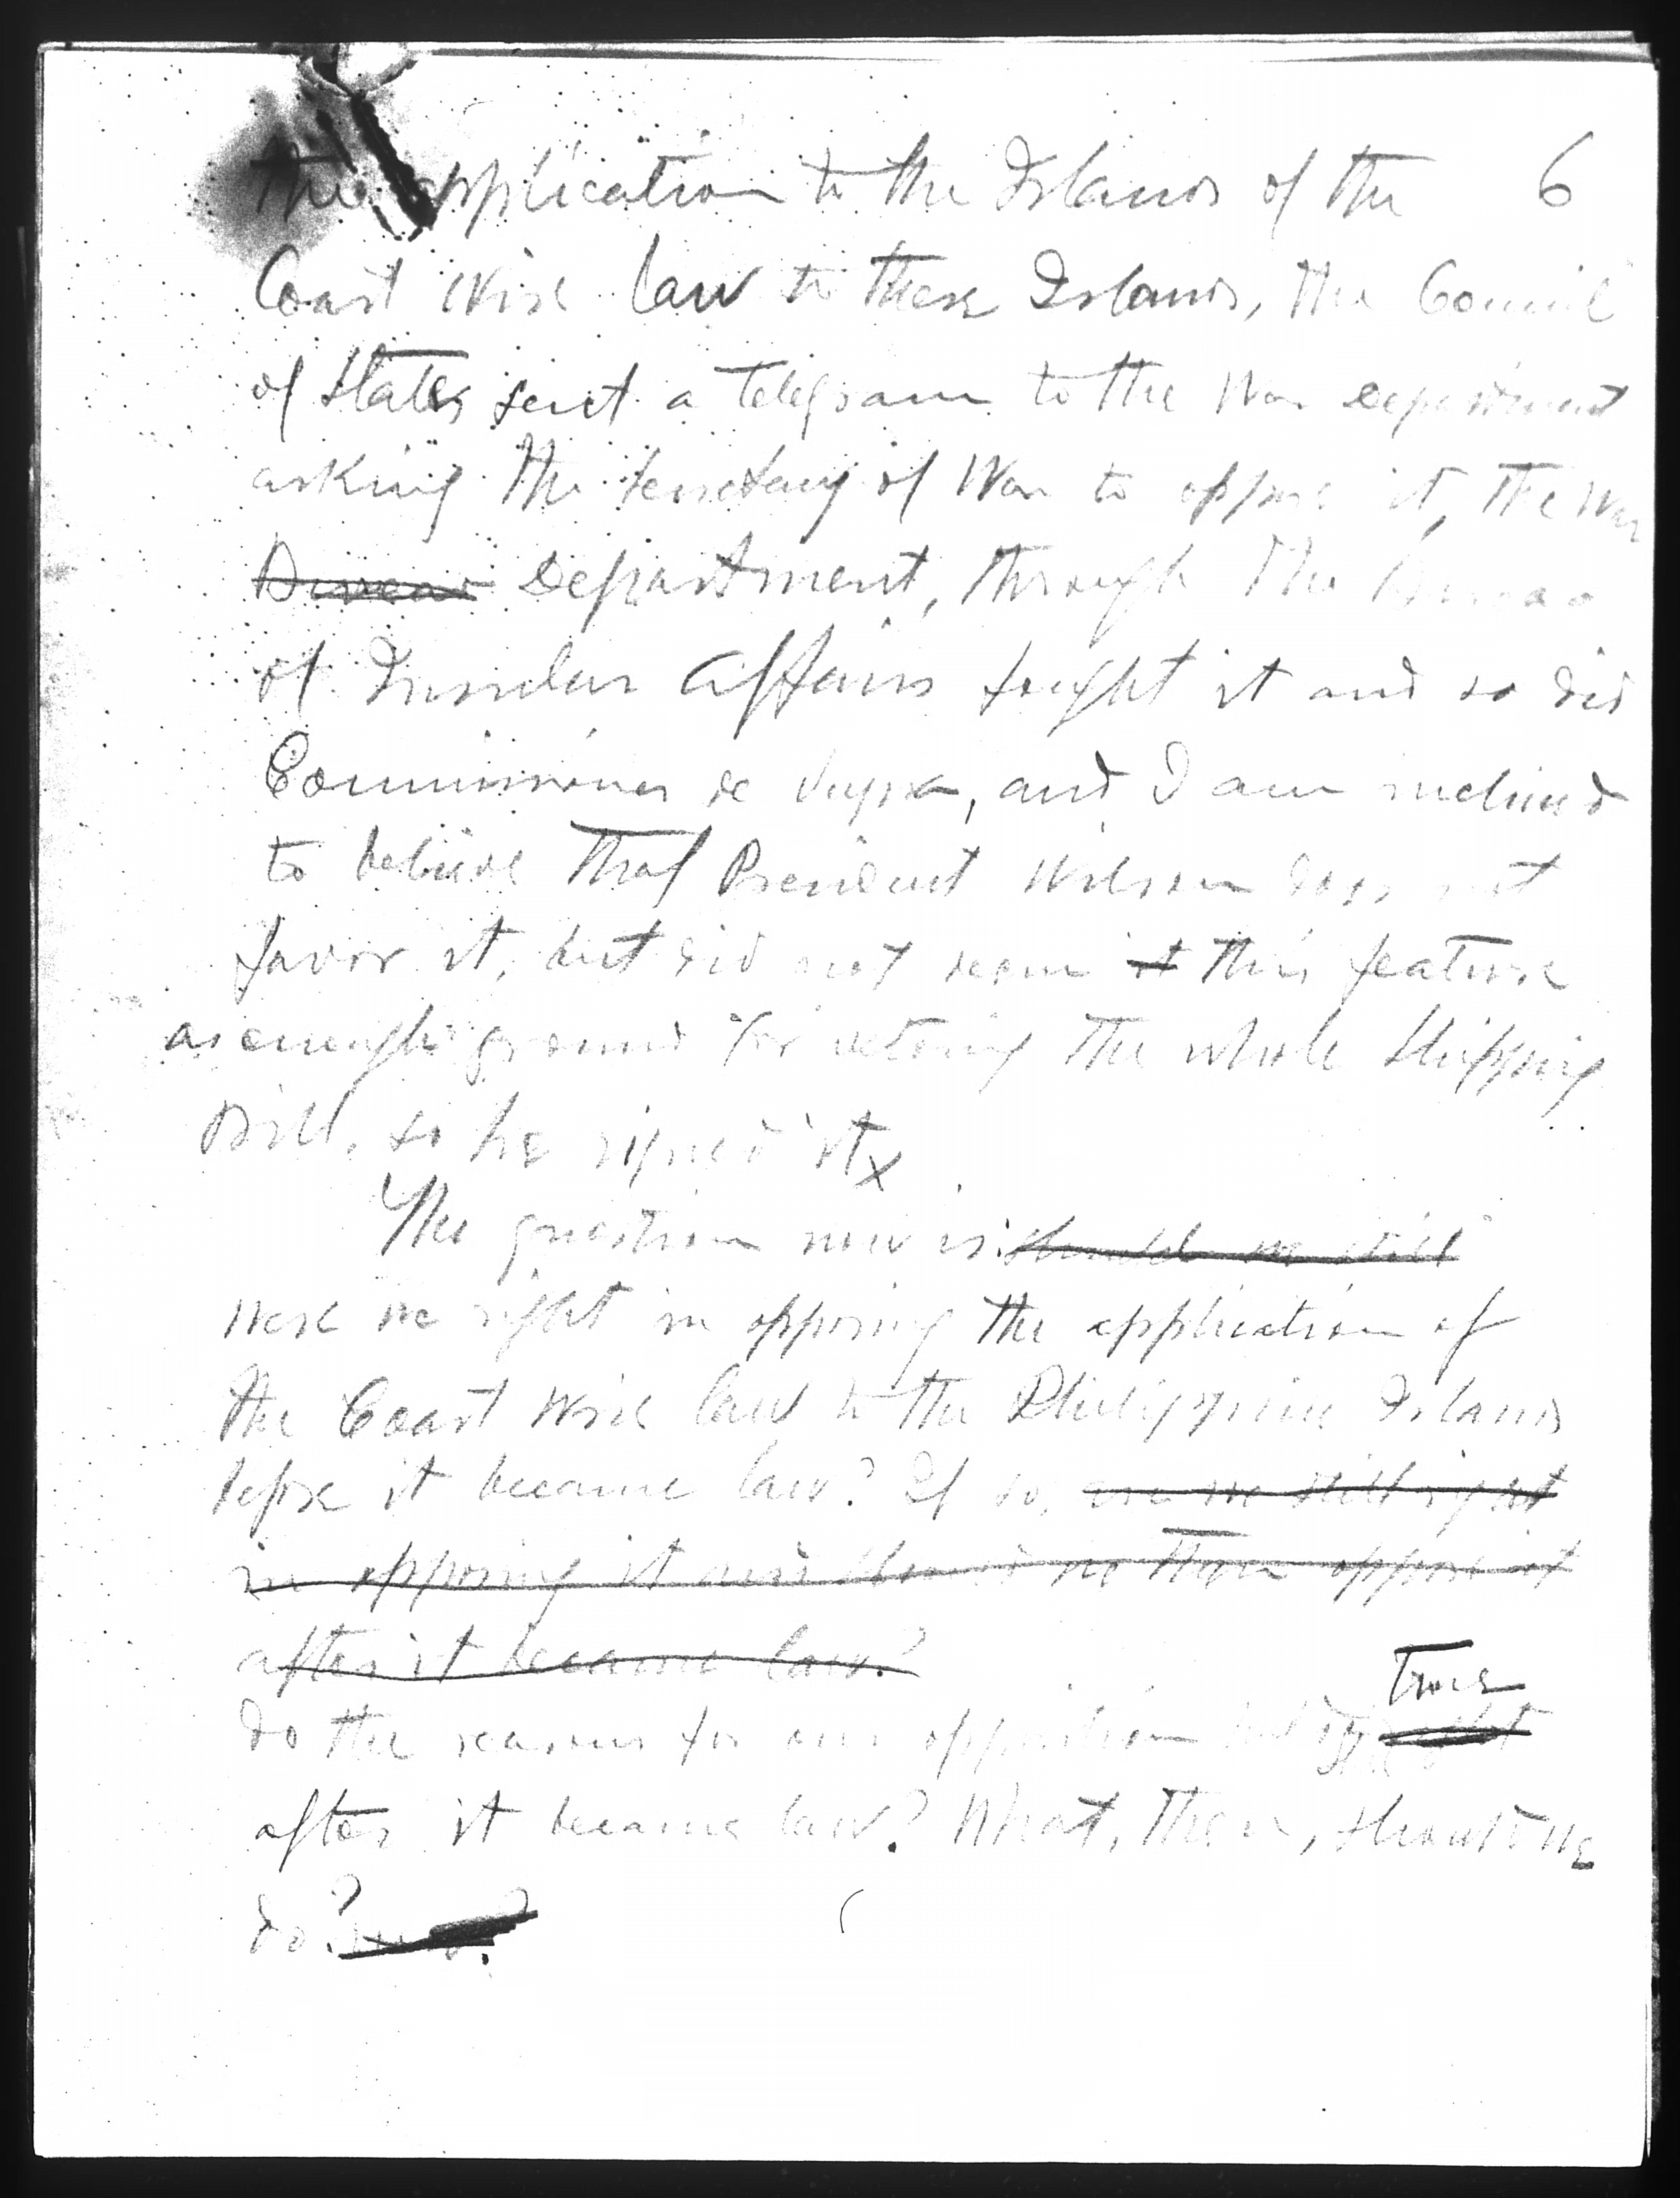 the application to the Islands of the 6
Coast wise law to these Islands, the Council
of State, sent a telegram to the War Department
asking the Secretary of War to oppose it, The War
Bureau Department, through the Bureau
of Insular Affairs fought it and so did
Commissioner de Veyra, and I am inclined
to believe that President Wilson does not
favor it, but did not seem it this feature
as enough ground for vetoing the whole Shipping
Bill, so he signed it x
The question now is: should we still
were we right in opposing the application of
the Coast wise law to the Philippine Islands
before it became law? If so, are we still right
in opposing it and should we then oppose it
after it became law?
true
do the reasons for our opposition hold
after it became law? What, then, should we
do?